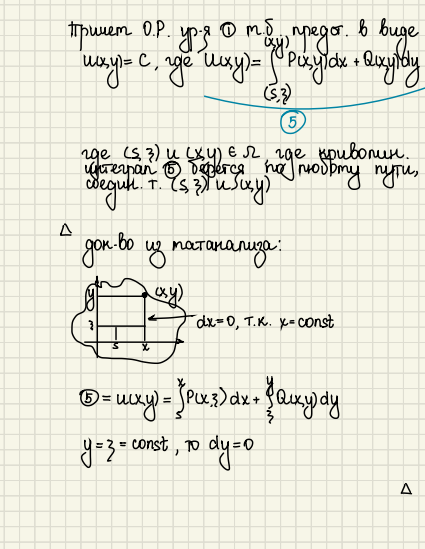 Причем О.Р. ур-я ① т.б. предст. в виде
U(x,y) = C, где U(x,y) = ∫_{(s,ξ)}^{(x,y)} P(x,y)dx + Q(x,y)dy
⑤
где (s,ξ) и (x,y) ∈ Ω, где криволин.
интеграл ⑤ берется по любому пути,
соедин. т. (s,ξ) и (x,y)
Δ
док-во из матанализа:
y (x,y)
dx=0, т.к. x=const
ξ
s x
⑤ = U(x,y) = ∫_s^x P(x,ξ)dx + ∫_ξ^y Q(x,y)dy
y=ξ=const, то dy=0
Δ